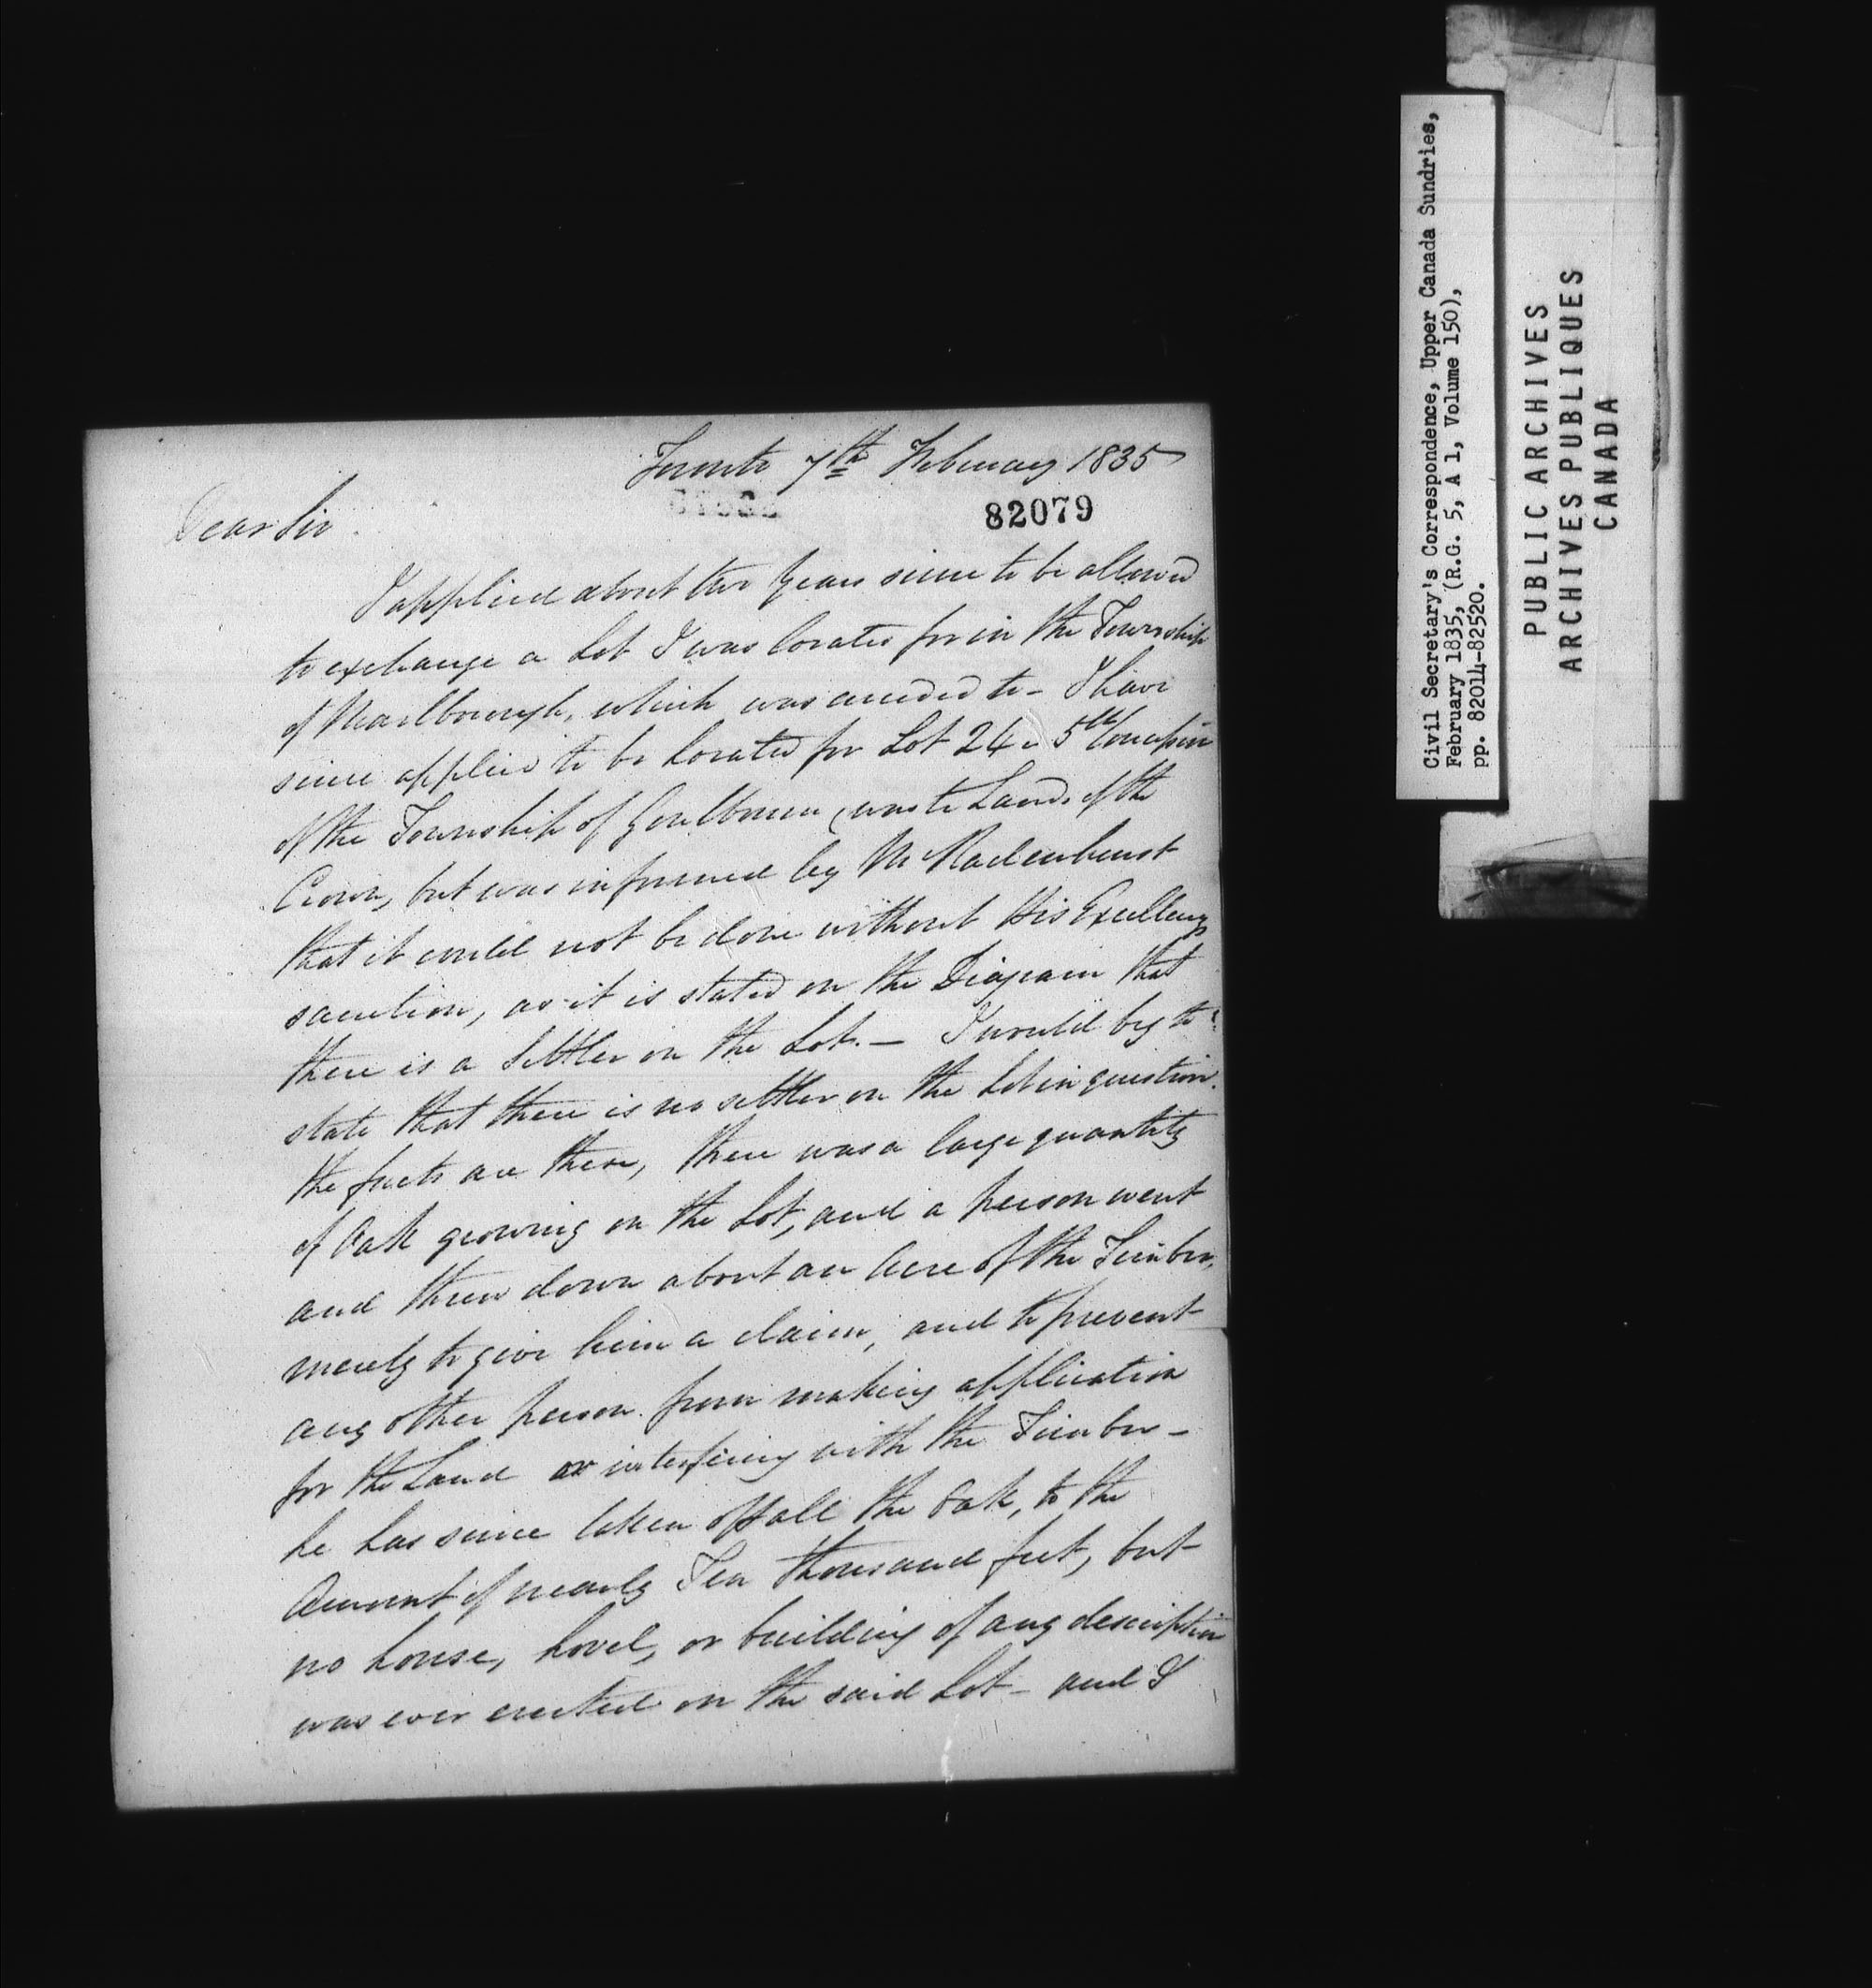 Toronto 7th February 1835
82079
Dear Sir
I applied about two Years since to be allowed
to exchange a Lot I was located for in the Township
of Marlborough, which was acceded to - I have
since applied to be located for Lot 24 in 5th Concession
of the Township of Goulbourn (waste Lands of the
Crown, but was informed by Mr Radenhurst
that it could not be done without His Excellency
sanction, as it is stated on the Diagram that
there is a Settler on the Lot. — I would beg to
state that there is no settler on the Lot in question.
the facts are these, there was a large quantity
of Oak growing on the Lot, and a person went
and threw down about an Acre of the Timber,
merely to give him a claim, and to prevent
any other person from making application
for the Land or interfering with the Timber -
he has since taken off all the Oak, to the
Amount of nearly Ten thousand feet, but
no house, hovel, or building of any description
was ever erected on the said Lot - and I
Civil Secretary's Correspondence, Upper Canada Sundries,
February 1835, (R.G. 5, A 1, Volume 150),
pp. 82014-82520.
PUBLIC ARCHIVES
ARCHIVES PUBLIQUES
CANADA